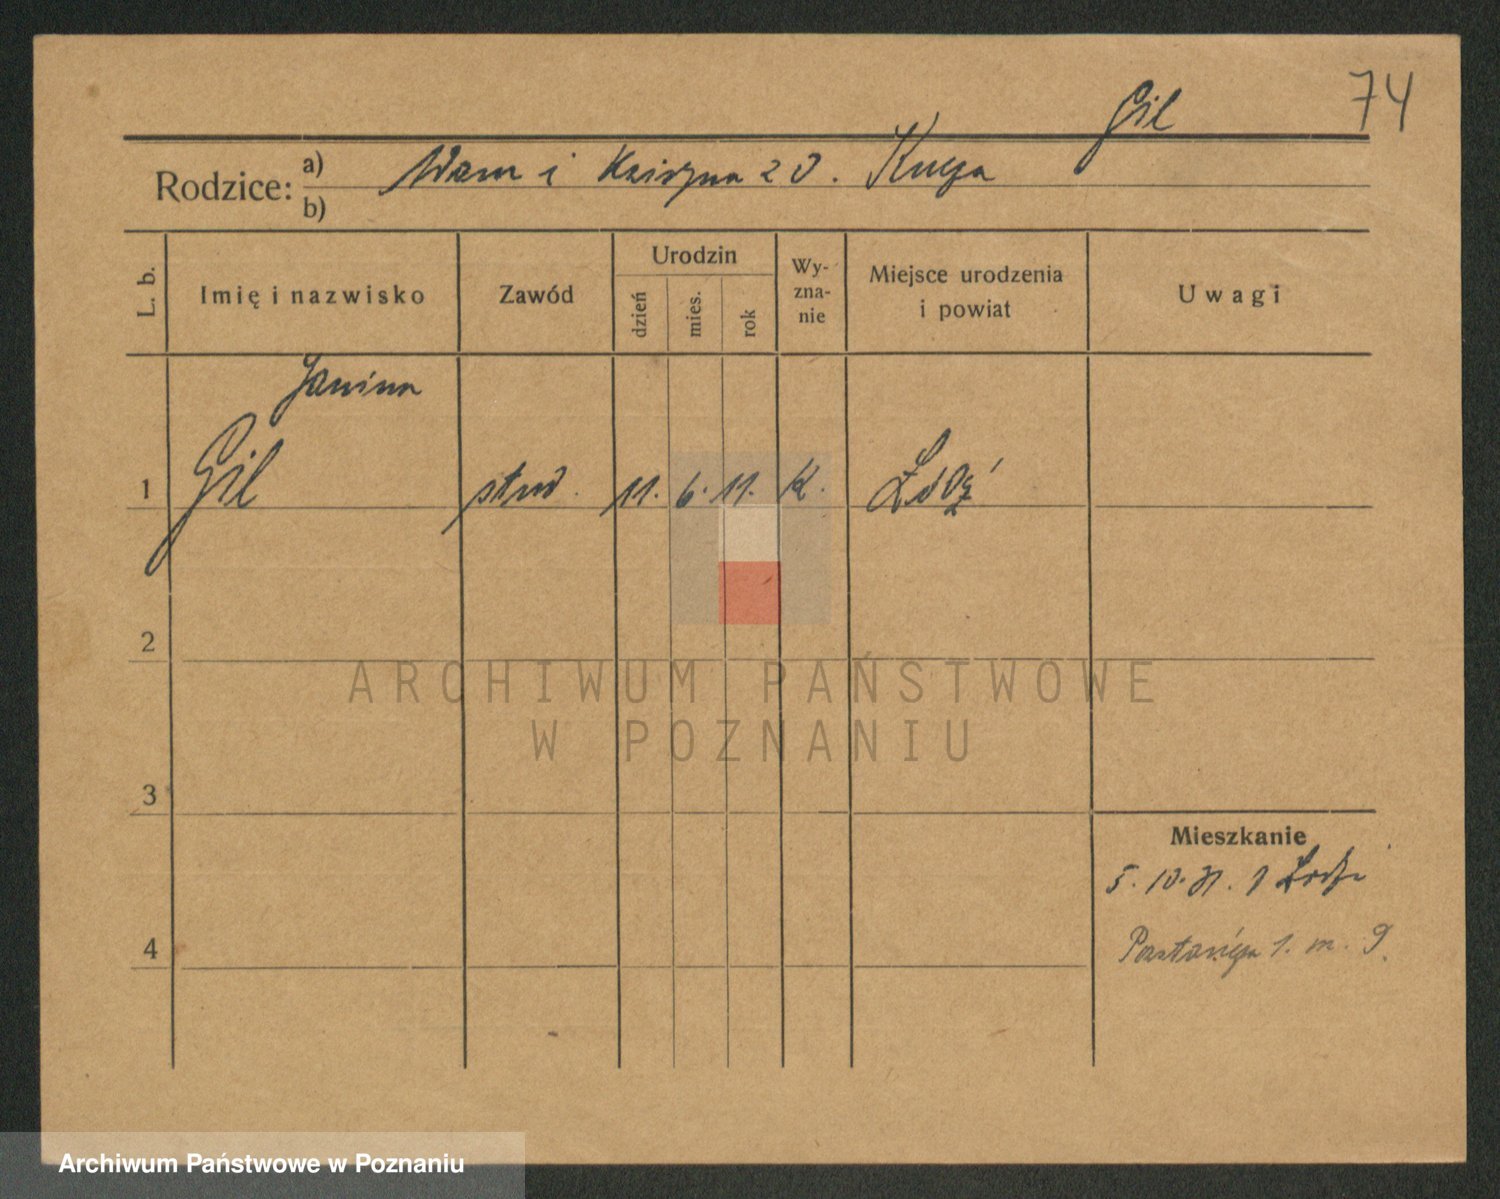 74
Gil
Rodzice: a) Adam i
b)
L. b.
Imię i nazwisko
Zawód
Urodzin
dzień
mies.
rok
Wy-
zna-
nie
Miejsce urodzenia
i powiat
Uwagi
Janina
1 Gil stud. 11. 6. 11. K. Łódź
2
3
4
Mieszkanie
5. 10. 31. z Łodzi
1. m. 9.
ARCHIWUM PAŃSTWOWE
W POZNANIU
Archiwum Państwowe w Poznaniu